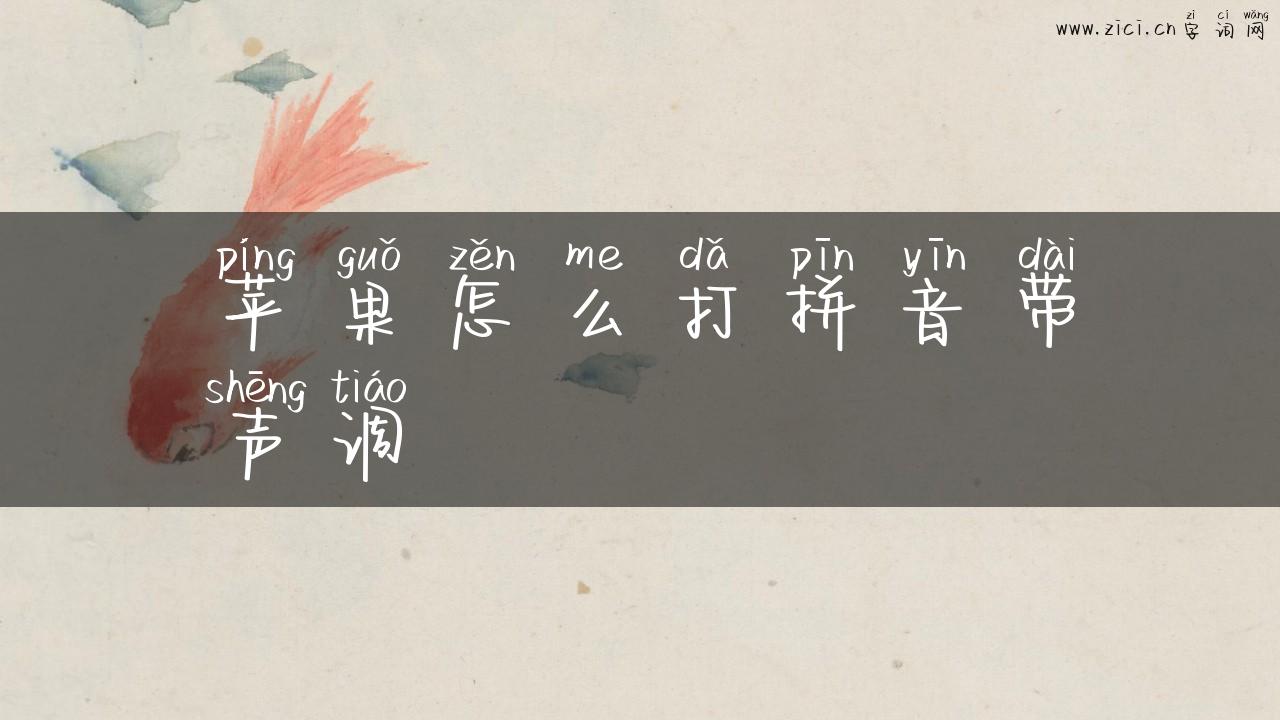 zì cí wǎng
www.zici.cn 字 词 网
píng guǒ zěn me dǎ pīn yīn dài
苹 果 怎 么 打 拼 音 带
shēng tiáo
声 调